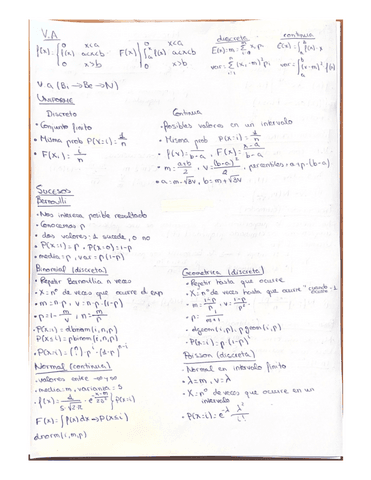 V.A
discreta
continua
f(x)= { 0 x<a
f(x) a<x<b
0 x>b
F(x) { 0 x<a
∫ f(x) a<x<b
0 x>b
E(x): m = Σ xᵢ pᵢ
var: Σ (xᵢ-m)² pᵢ
E(x): ∫ f(x)·x
var: ∫ (x-m)² f(x)
V.a (Bi → Be → N)
Uniforme
Discreto
• Conjunto finito
• Misma prob P(X=i) = 1/n
• F(xᵢ) = i/n
Continua
• posibles valores en un intervalo
• Misma prob P(X=i) = 1/n
• f(x): 1/b-a , F(x) = x-a/b-a
• m = a+b/2 , v = (b-a)² , percentiles = a+p·(b-a)
• a = m-√3v , b = m+√3v
Sucesos
Bernoulli
• Nos interesa posible resultado
• Conocemos p
• dos valores: 1 sucede, 0 no
• P(X=1) = p , P(X=0) = 1-p
• media = p , var = p(1-p)
Binomial (discreta)
• Repetir Bernoullia n veces
• X = nº de veces que ocurre el exp
• m = n·p , v = n·p·(1-p)
• p = 1- v/m , n =
• P(X=i) = dbinom(i,n,p)
P(X≤i) = pbinom(i,n,p)
• P(X=i) = (n i) pⁱ (1-p)ⁿ⁻ⁱ
Geometrica (discreta)
• Repetir hasta que ocurre
• X = nº de veces hasta que ocurre
• m = 1-p/p , v = 1-p/p²
• p = 1/m+1
• dgeom(i,p), pgeom(i,p)
• P(X=i) = p(1-p)ⁱ
Normal (continua)
• valores entre -∞ y ∞
• media: m, varianza: s
F(x) = ∫ f(x)dx → P(X≤i)
dnorm(i,m,p)
Poisson (discreta)
• Normal en intervalo finito
• λ = m , v = λ
• X = nº de veces que ocurre en un
intervalo
• P(X=i) = e^-λ λⁱ/i!